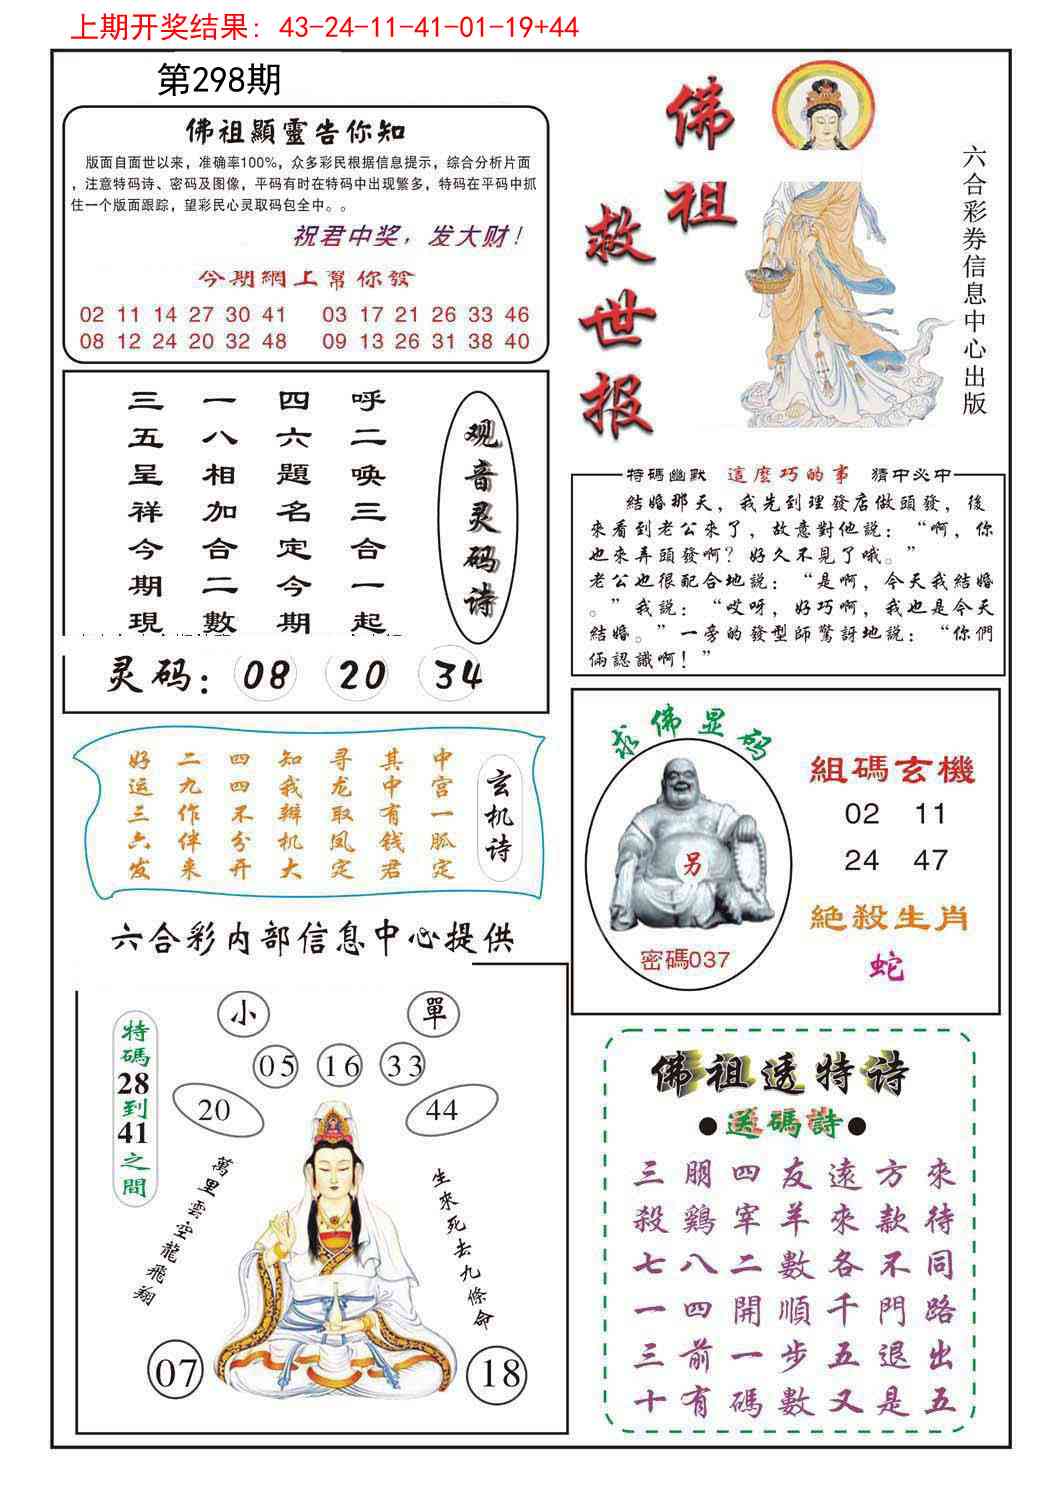 上期开奖结果：43-24-11-41-01-19+44
第298期
佛祖顯靈告你知
版面自面世以来，准确率100%，众多彩民根据信息提示，综合分析片面
，注意特码诗、密码及图像，平码有时在特码中出现繁多，特码在平码中抓
住一个版面跟踪，望彩民心灵取码包全中。。
祝君中奖，发大财！
今期網上幫你發
02 11 14 27 30 41 03 17 21 26 33 46
08 12 24 20 32 48 09 13 26 31 38 40
佛祖救世报
六合彩券信息中心出版
观音灵码诗
呼二唤三合一起
四六題名定今期
一八相加合二數
三五呈祥今期現
灵码：08 20 34
特碼幽默 這麼巧的事 猜中必中
結婚那天，我先到理發店做頭發，後
來看到老公來了，故意對他説：“啊，你
也來弄頭發啊？好久不見了哦。”
老公也很配合地説：“是啊，今天我結婚
。”我説：“哎呀，好巧啊，我也是今天
結婚。”一旁的發型師驚訝地説：“你們
倆認識啊！”
玄机诗
中宫一胍定
其中有钱君
寻龙取凤定
知我辩机大
四四不分开
二九作伴来
好运三六发
求佛显码
另
密碼037
組碼玄機
02 11
24 47
絕殺生肖
蛇
六合彩内部信息中心提供
特碼28到41之間
小 單
05 16 33
20 44
萬里雲空龍飛翔
生來死去九條命
07 18
佛祖透特诗
●送碼詩●
三朋四友遠方來
殺鷄宰羊來款待
七八二數各不同
一四開順千門路
三前一步五退出
十有碼數又是五